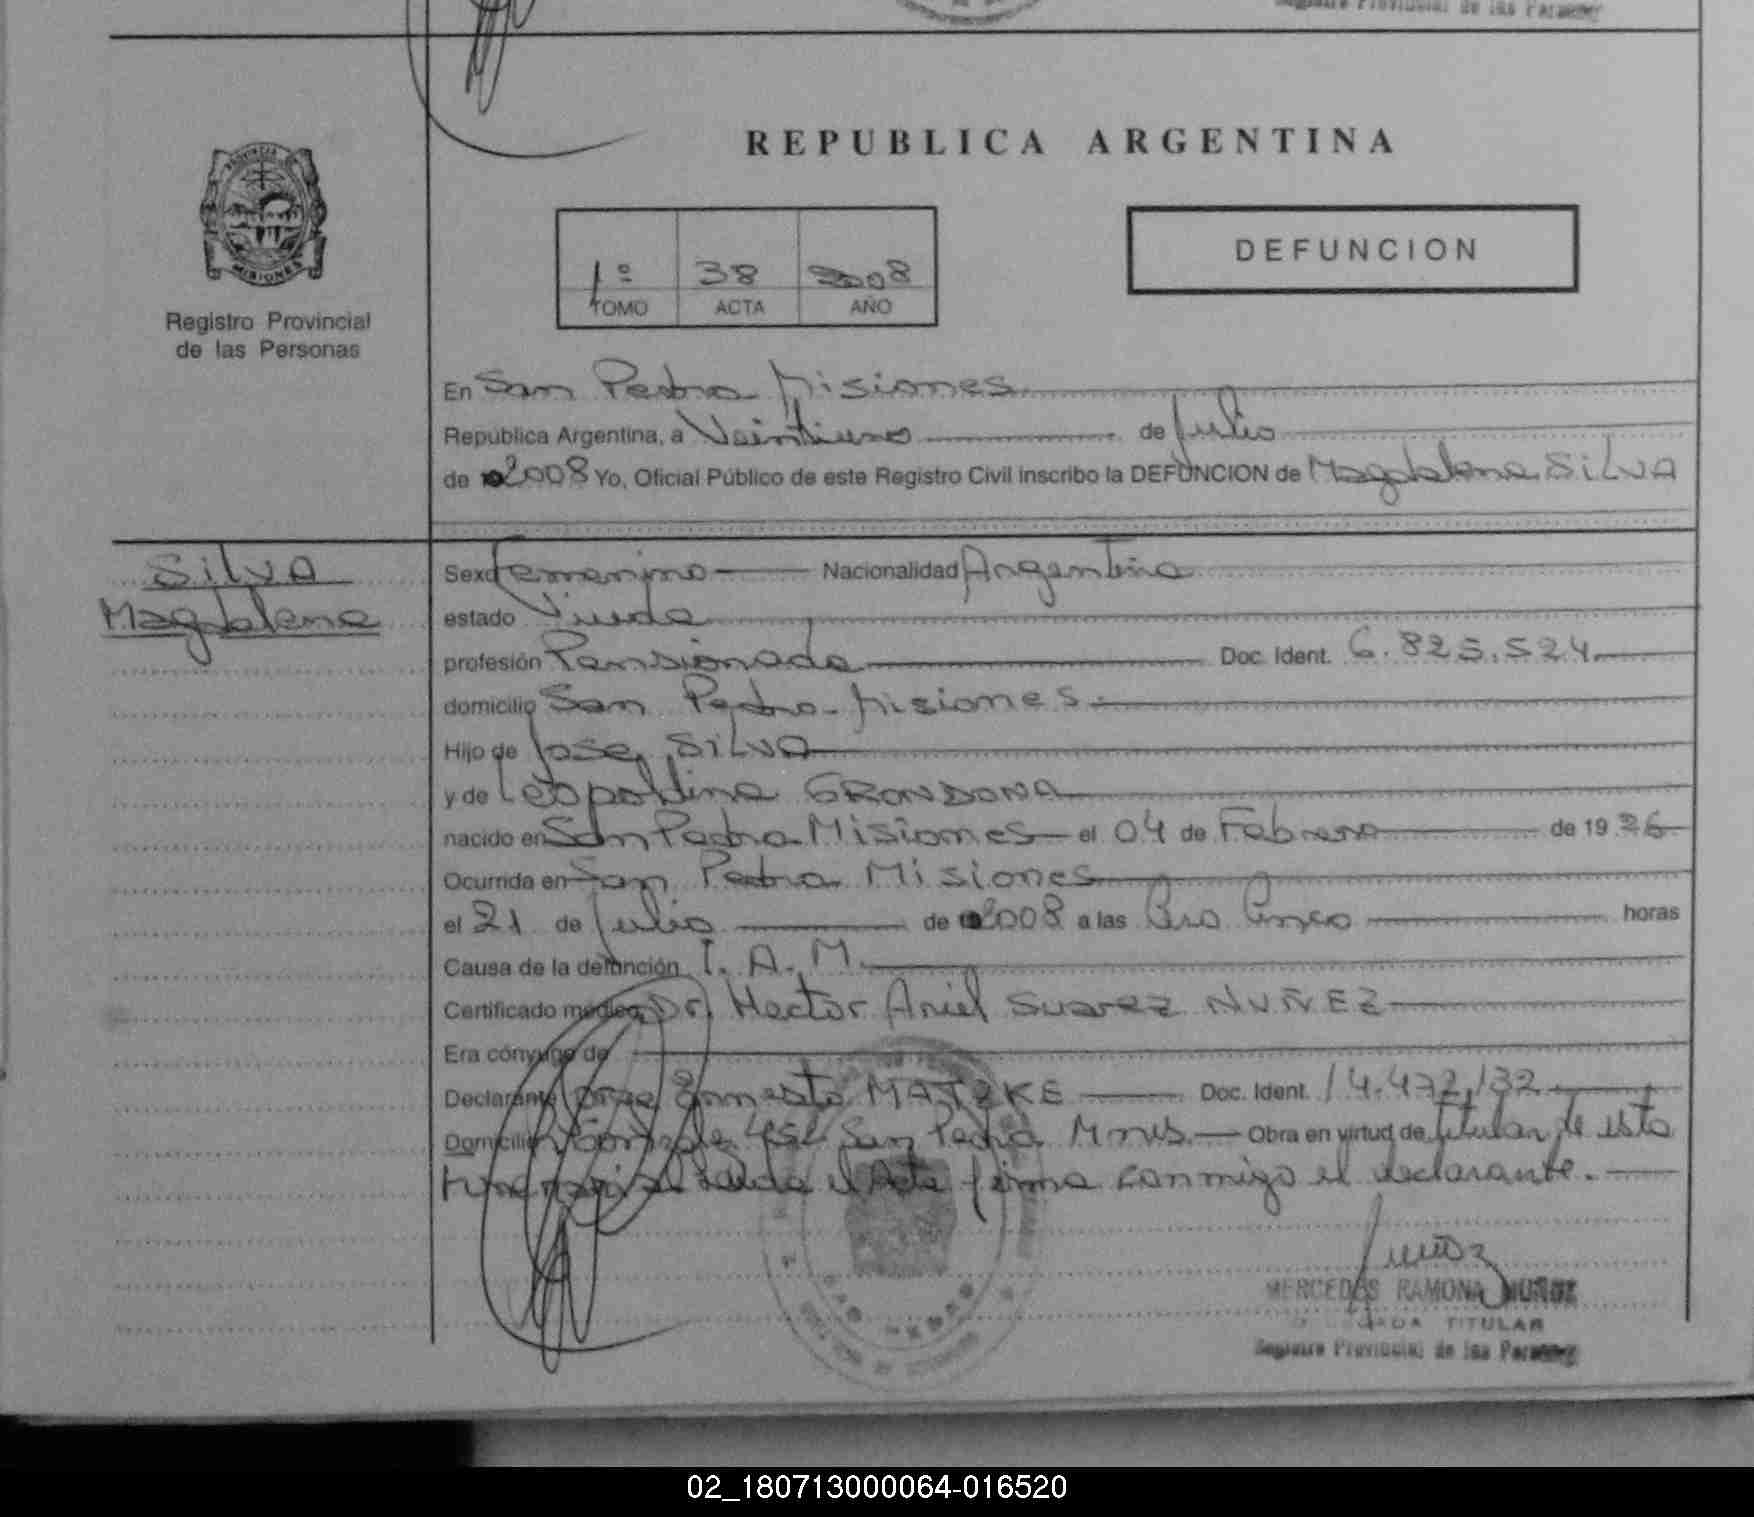 Registro Provincial de las Personas
REPUBLICA ARGENTINA
PROVINCIA DE
MISIONES
Registro Provincial
de las Personas
1º 38 2008
TOMO ACTA AÑO
DEFUNCION
En San Pedro Misiones
República Argentina, a Veintiuno de Julio
de 2008 Yo, Oficial Público de este Registro Civil inscribo la DEFUNCION de Magdalena SILVA
Silva
Magdalena
Sexo Femenino Nacionalidad Argentina
estado Viuda
profesión Pensionada Doc. Ident. 6.825.524
domicilio San Pedro - Misiones
Hijo de Jose SILVA
y de Leopoldina GRONDONA
nacido en San Pedro Misiones el 04 de Febrero de 1926
Ocurrida en San Pedro Misiones
el 21 de Julio de 2008 a las Cero Cinco horas
Causa de la defunción I. A. M.
Certificado médico Dr. Hector Ariel Suarez NUÑEZ
Era cónyuge de
Declarante Jorge Ernesto MATZKE Doc. Ident. 14.472.132
Domicilio San Pedro Mnes. Obra en virtud de titular de esta
funeraria Leida el Acta firma conmigo el declarante.
MERCEDES RAMONA MUÑOZ
TITULAR
Registro Provincial de las Personas
02_180713000064-016520